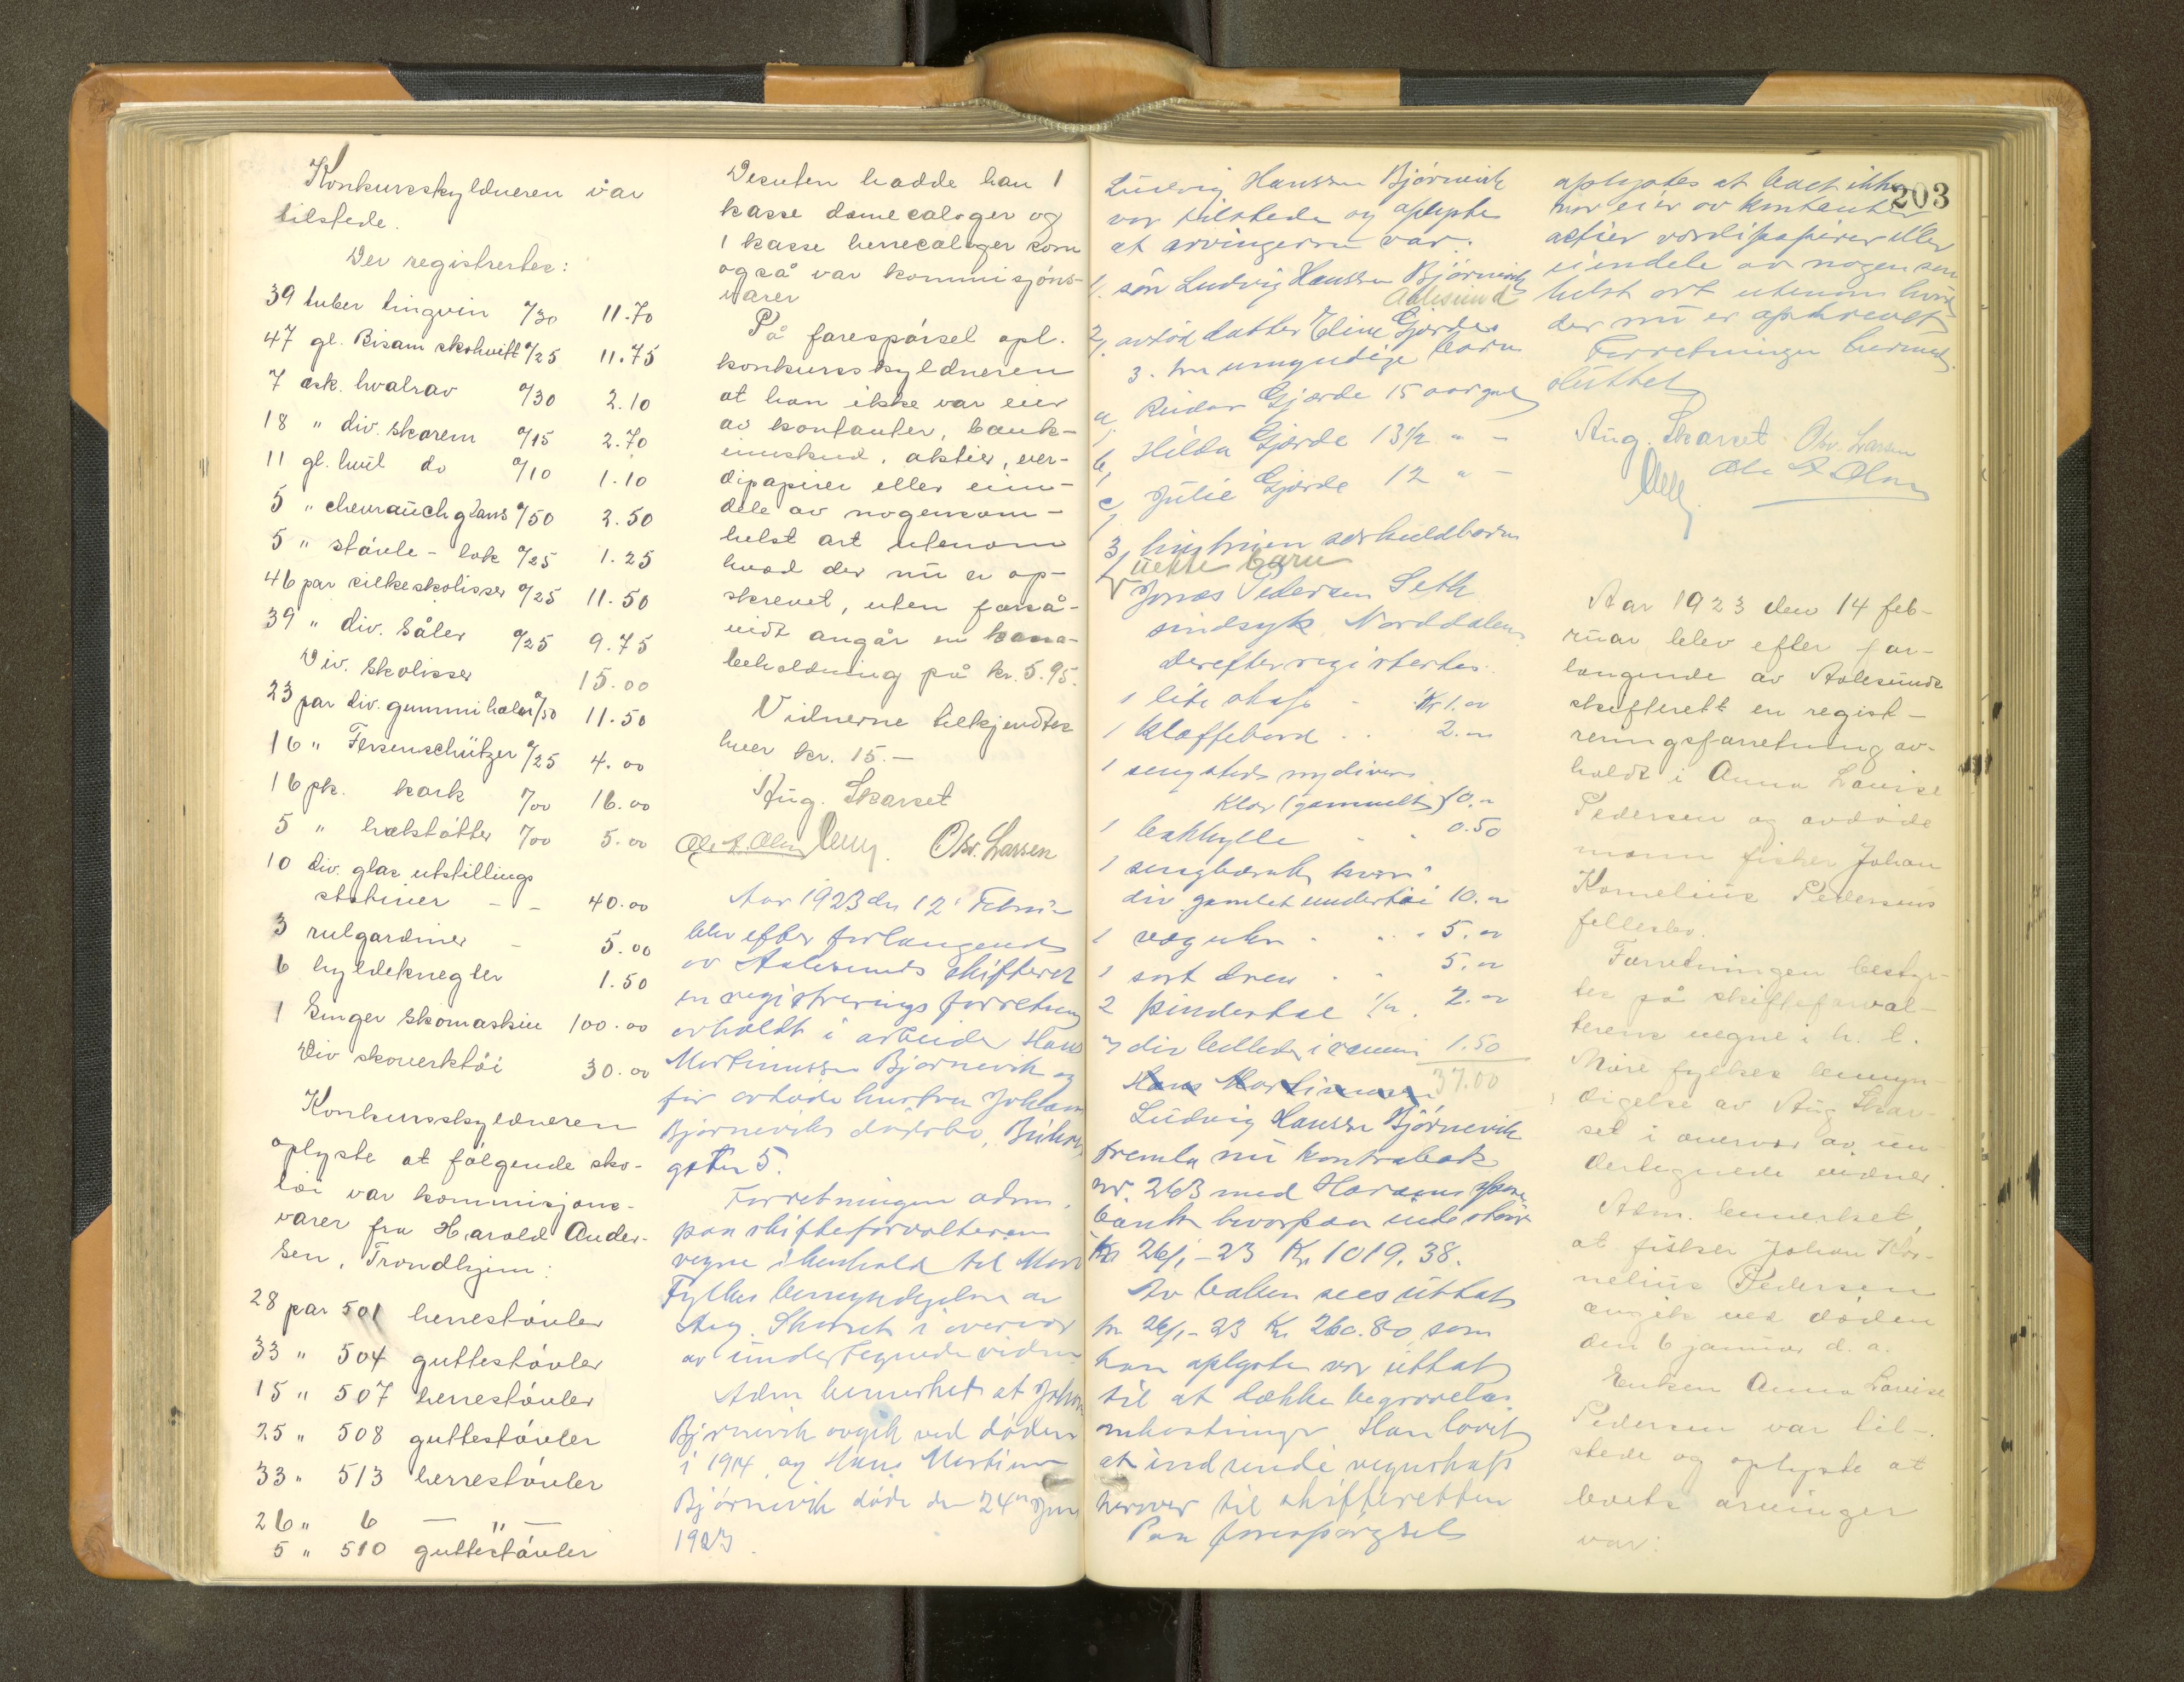 Konkursskyldneren var
tilstede.
Der registrertes:
39 tuber lingvin a/30 11.70
47 gl. Bisam skohvitt a/25 11.75
7 æsk. hvalrav a/30 2.10
18 " div. skorem a/15 2.70
11 gl. hvit do a/10 1.10
5 " chevrauchglans a/50 2.50
5 " støvle-lak a/25 1.25
46 par silkeskolisser a/25 11.50
39 " div. såler a/25 9.75
Div. skolisser 15.00
23 par div. gummihæler a/50 11.50
16 " Fersenschützer a/25 4.00
16 pk. kork 1/00 16.00
5 " hælstøtter 1/00 5.00
10 div. glas utstillings
stativer - - 40.00
3 rulgardiner - 5.00
6 hyldeknegter 1.50
1 Singer skomaskin 100.00
Div skoverktøi 30.00
Konkursskyldneren
oplyste at følgende sko-
tøi var kommisjons-
varer fra Harald Ander-
sen, Trondhjem:
28 par 501 herrestøvler
33 " 504 guttestøvler
15 " 507 herrestøvler
25 " 508 guttestøvler
33 " 513 herrestøvler
26 " 6 — " —
5 " 510 guttestøvler
Desuten hadde han 1
kasse damecaloger og
1 kasse herrecaloger som
også var kommisjons-
varer
På forespørsel opl.
konkursskyldneren
at han ikke var eier
av kontanter, bank-
innskud, aktier, ver-
dipapirer eller eien-
dele av nogensom-
helst art utenom
hvad der nu er op-
skrevet, uten forså-
vidt angår en kassa-
beholdning på kr. 5.95.
Vidnerne tilkjendtes
hver kr. 15.—
Aug. Skarset
Ole L. Olsen Osv. Larsen
Aar 1923 den 12' Februar
blev efter forlangende
av Aalesunds skifteret
en registreringsforretning
avholdt i arbeider Hans
Martinussen Bjørnevik og
før avdøde hustru Johanne
Bjørneviks dødsbo,
gaten 5.
Forretningen adm.
paa skifteforvalterens
vegne i henhold til Møre
Fylkes bemyndigelse av
Aug. Skarset i overvær
av undertegnede vidner
Adm bemerket at Johanne
Bjørnevik avgik ved døden
i 1914, og Hans Martinus
Bjørnevik døde den 24de Jan
1923.
203
Ludvig Hanssen Bjørnevik
var tilstede og oplyste
at arvingerne var:
1. søn Ludvig Hanssen Bjørnevik
Aalesund
2. avdød datter Eline Gjærdes
3. tre umyndige barn
a, Reidar Gjærde 15 aar gml
b, Hilda Gjærde 13½ " -
c, Julie Gjærde 12 " -
3, hustruen særkuldbarn
uekte barn
Jonas Pedersen Seth
sindsyk, Norddalen
derefter registertes.
1 lite skap - Kr 1.00
1 klaffebord .. 2.00
1 sengsted m/divers
klær (gammelt) 10.00
1 bakhylle - - 0.50
1 sengbænk hvori
div gamlet undertøi 10.00
1 væguhr . . . 5.00
1 sort dress . . 5.00
2 pinderstole 1/00 . 2.00
7 div billeder i ramme 1.50
37.00
Hans Martinussen
Ludvig Hanssen Bjørnevik
fremla nu kontrabok
nr. 263 med Harams spare
bank hvorpaa indestaar
pr 26/1-23 Kr 1019.38.
Av boken sees uttat
pr 26/1-23 Kr. 260.80 som
han oplyste var uttat
til at dække begravelses
omkostninger Han lovet
at indsende regnskap
herover til skifteretten
Paa forespørgsel
oplystes at boet ikke
var eier av kontanter
aktier værdipapirer eller
eiendele av nogen som
helst art utenom hvad
der nu er opskrevet
Forretningen hermed
sluttet
Aug. Skarset. Osv. Larsen
Ole L Olsen
Aar 1923 den 14 feb-
ruar blev efter for-
langende av Aalesunds
skifterett en regist-
reringsforretning av-
holdt i Anna Lovise
Pedersen og avdøde
mann fisker Johan
Kornelius Pedersens
fellesbo.
Forretningen besty-
tes på skifteforval-
terens vegne i h. t.
Møre fylkes bemyn-
digelse av Aug. Skar-
set i overvær av un-
dertegnede vidner.
Adm. bemerket,
at fisker Johan Kor-
nelius Pedersen
avgik ved døden
den 6 januar d. a.
Enken Anna Lovise
Pedersen var til-
stede og oplyste at
boets arvinger
var: